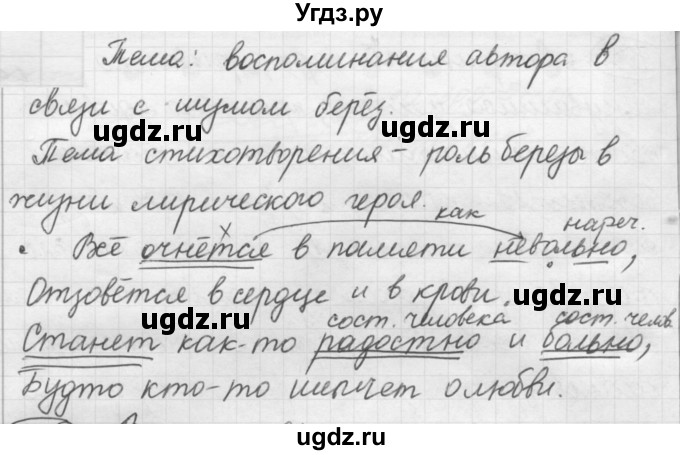 Угдз.ру
Тема: воспоминания автора в
связи с шумом берёз.
ugdz.ru ugdz.ru
Тема стихотворения – роль березы в
жизни лирического героя.
как нареч.
Всё очнётся в памяти невольно,
Отзовётся в сердце и в крови.
ugdz.ru ugdz.ru
сост. человека сост. челов.
Станет как-то радостно и больно,
Будто кто-то шепчет о любви.
ugdz.ru